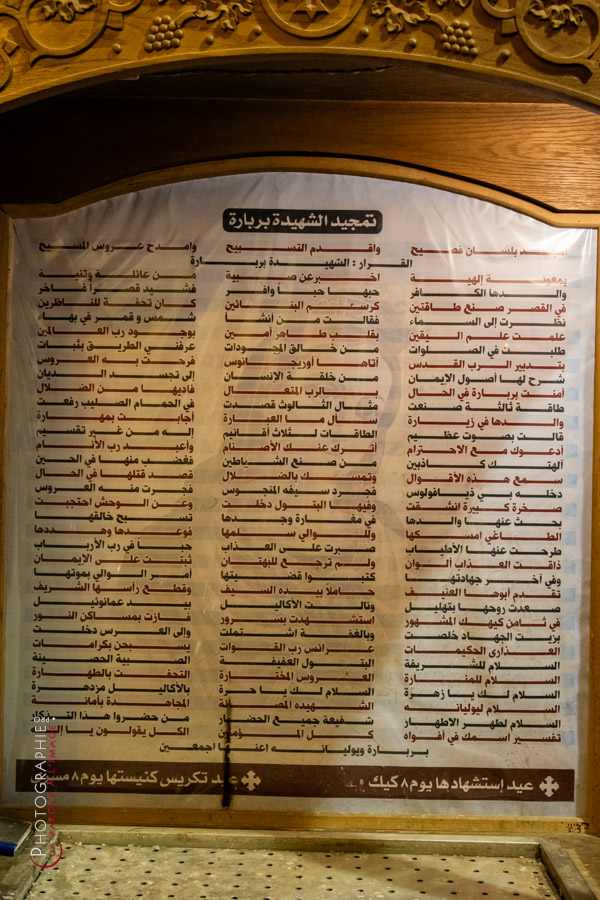 تمجيد الشهيدة بربارة
بلسان فصيح وأقدم التسبيح وامدح عروس المسيح
القرار : الشهيدة بربارة
بمعونة إلهية اخبر عن صبية من عائلة وثنية
والدها الكافر حبهبا حباً وافر فشيد قصراً فاخر
في القصر صنع طاقتين كرسم البنائين كان تحفة للناظرين
نظرت إلى السماء فقالت من أنشأ شمس و قمر في بهاء
علمت علم اليقين بقلب طاهر أمين بوجود رب العالمين
طلبت في الصلوات من خالق الموجودات عرفني الطريق بثبات
بتدبير الرب القدس أتاها أوريجانوس فرحت به العروس
شرح لها أصول الإيمان من خلقة الإنسان إلى تجسد الديان
أمنت بربارة في الحال بالرب المتعال فاديها من الضلال
طاقة ثالثة صنعت مثال الثالوث قصدت في الحمام الصليب رفعت
والدها في زيارة سأل ما العبارة أجابت بمهارة
قالت بصوت عظيم الطاقات لثلاث أقانيم إله من غير تقسيم
أدعوك مع الاحترام أترك عنك الأصنام وأعبد رب الأنام
ألهتك كذابين من صنع الشياطين فغضب منها في الحين
سمع هذه الأقوال وتمسك بالضلال قصد قتلها في الحال
دخله بي ذيافولوس فجرد سيفه المنجوس فجرت منه العروس
صخرة كبيرة انشقت وفيها البتول دخلت وعن الوحش احتجبت
بحث عنها والدها في مغارة وجدها تسبح خالقها
الطاغي امسكها وللوالي سلمها فوعدها وهددها
طرحت عنها الأطياب صبرت على العذاب حباً في رب الأرباب
ذاقت العذاب ألوان ولم ترجع للبهتان ثبتت على الإيمان
وفي أخر جهادتها كتبوا قضيتها أمر الوالي بموتها
تقدم أبوها العنيف حاملاً بيده السيف وقطع رأسها الشريف
صعدت روحها بتهليل ونالت الأكاليل بيد عمانوئيل
في ثامن كيهك المشهور استشهدت بسرور فازت بمساكن النور
بزيت الجهاد خلصت وبالعفة اشتملت وإلى العرس دخلت
العذارى الحكيمات عرائس رب القوات يسبحن بكرامات
السلام للشريفة البتول العفيفة الصبية الحصينة
السلام للمنارة العروس المختارة التحفت بالطهارة
السلام لك يا زهرة السلام لك يا حرة بالأكاليل مزدهرة
السلام ليوليانه الشهيده المصانة المجاهدة بأمانة
السلام لطهر الاطهار شفيعة جميع الحضار من حضروا هذا التذكار
تفسير اسمك في أفواه كل المؤمنين الكل يقولون يا إله
بربارة ويوليانه اجمعين
عيد إستشهادها يوم ٨ كيك تكريس كنيستها يوم ٨
PHOTOGRAPHIE